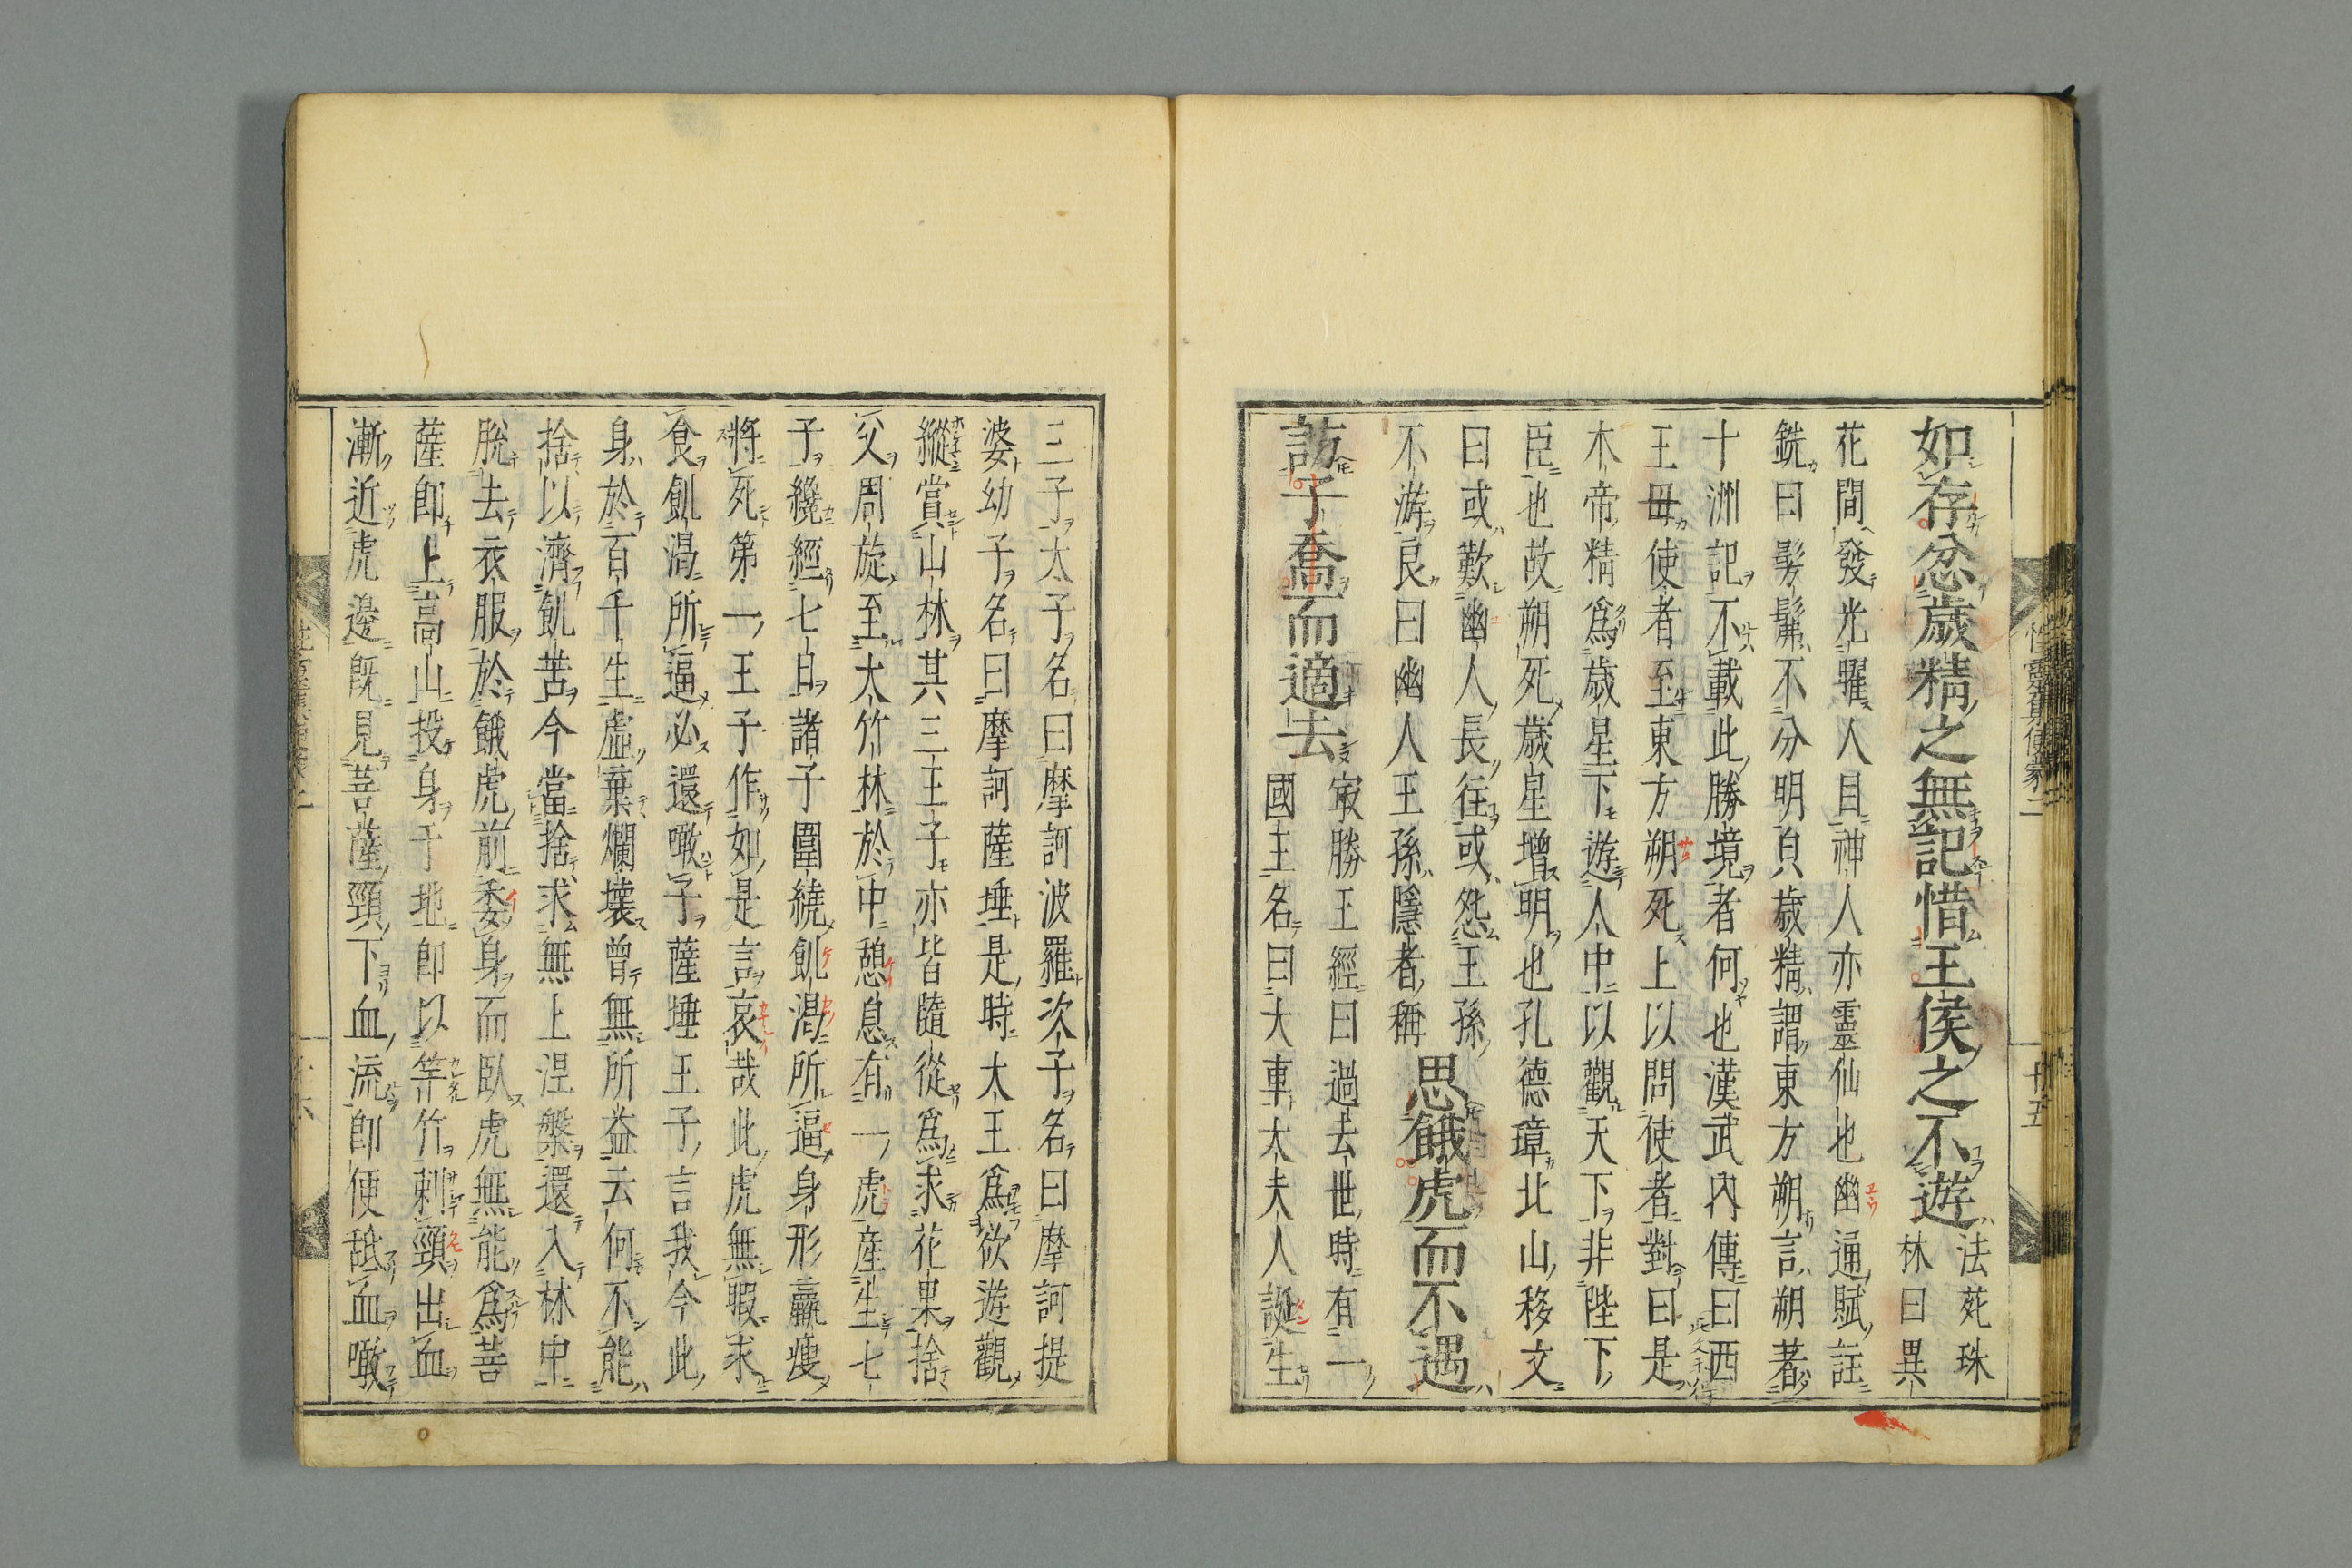 性靈集便蒙二
十五
如存忿歲精之無記惜王侯之不遊
法苑珠
林曰異
花間發光曜人目神人亦靈仙也幽通賦註
銑曰髣髴不分明貞歲精謂東方朔言朔著
十洲記不載此勝境者何也漢武內傳曰西
王母使者至東方朔死上以問使者對曰是
木帝精爲歲星下遊人中以觀天下非陛下
臣也故朔死歲星增明也孔德璋北山移文
曰或歎幽人長往或怨王孫
不游良曰幽人王孫隱者稱
思餓虎而不遇
訪子喬而適去
冣勝王經曰過去世時有一
國王名曰大車大夫人誕生
三子太子名曰摩訶波羅次子名曰摩訶提
婆幼子名曰摩訶薩埵是時大王爲欲遊觀
縱賞山林其三王子亦皆隨從爲求花果捨
父周旋至大竹林於中憩息有一虎產生七
子纔經七日諸子圍繞飢渴所逼身形羸瘦
將死第一王子作如是言哀哉此虎無暇求
食飢渴所逼必還噉子薩埵王子言我今此
身於百千生虛棄爛壞曾無所益云何不能
捨以濟飢苦今當捨求無上涅槃還入林中
脫去衣服於餓虎前委身而臥虎無能爲菩
薩卽上高山投身于地卽以等竹刺頸出血
漸近虎邊旣見菩薩頸下血流卽便舐血噉